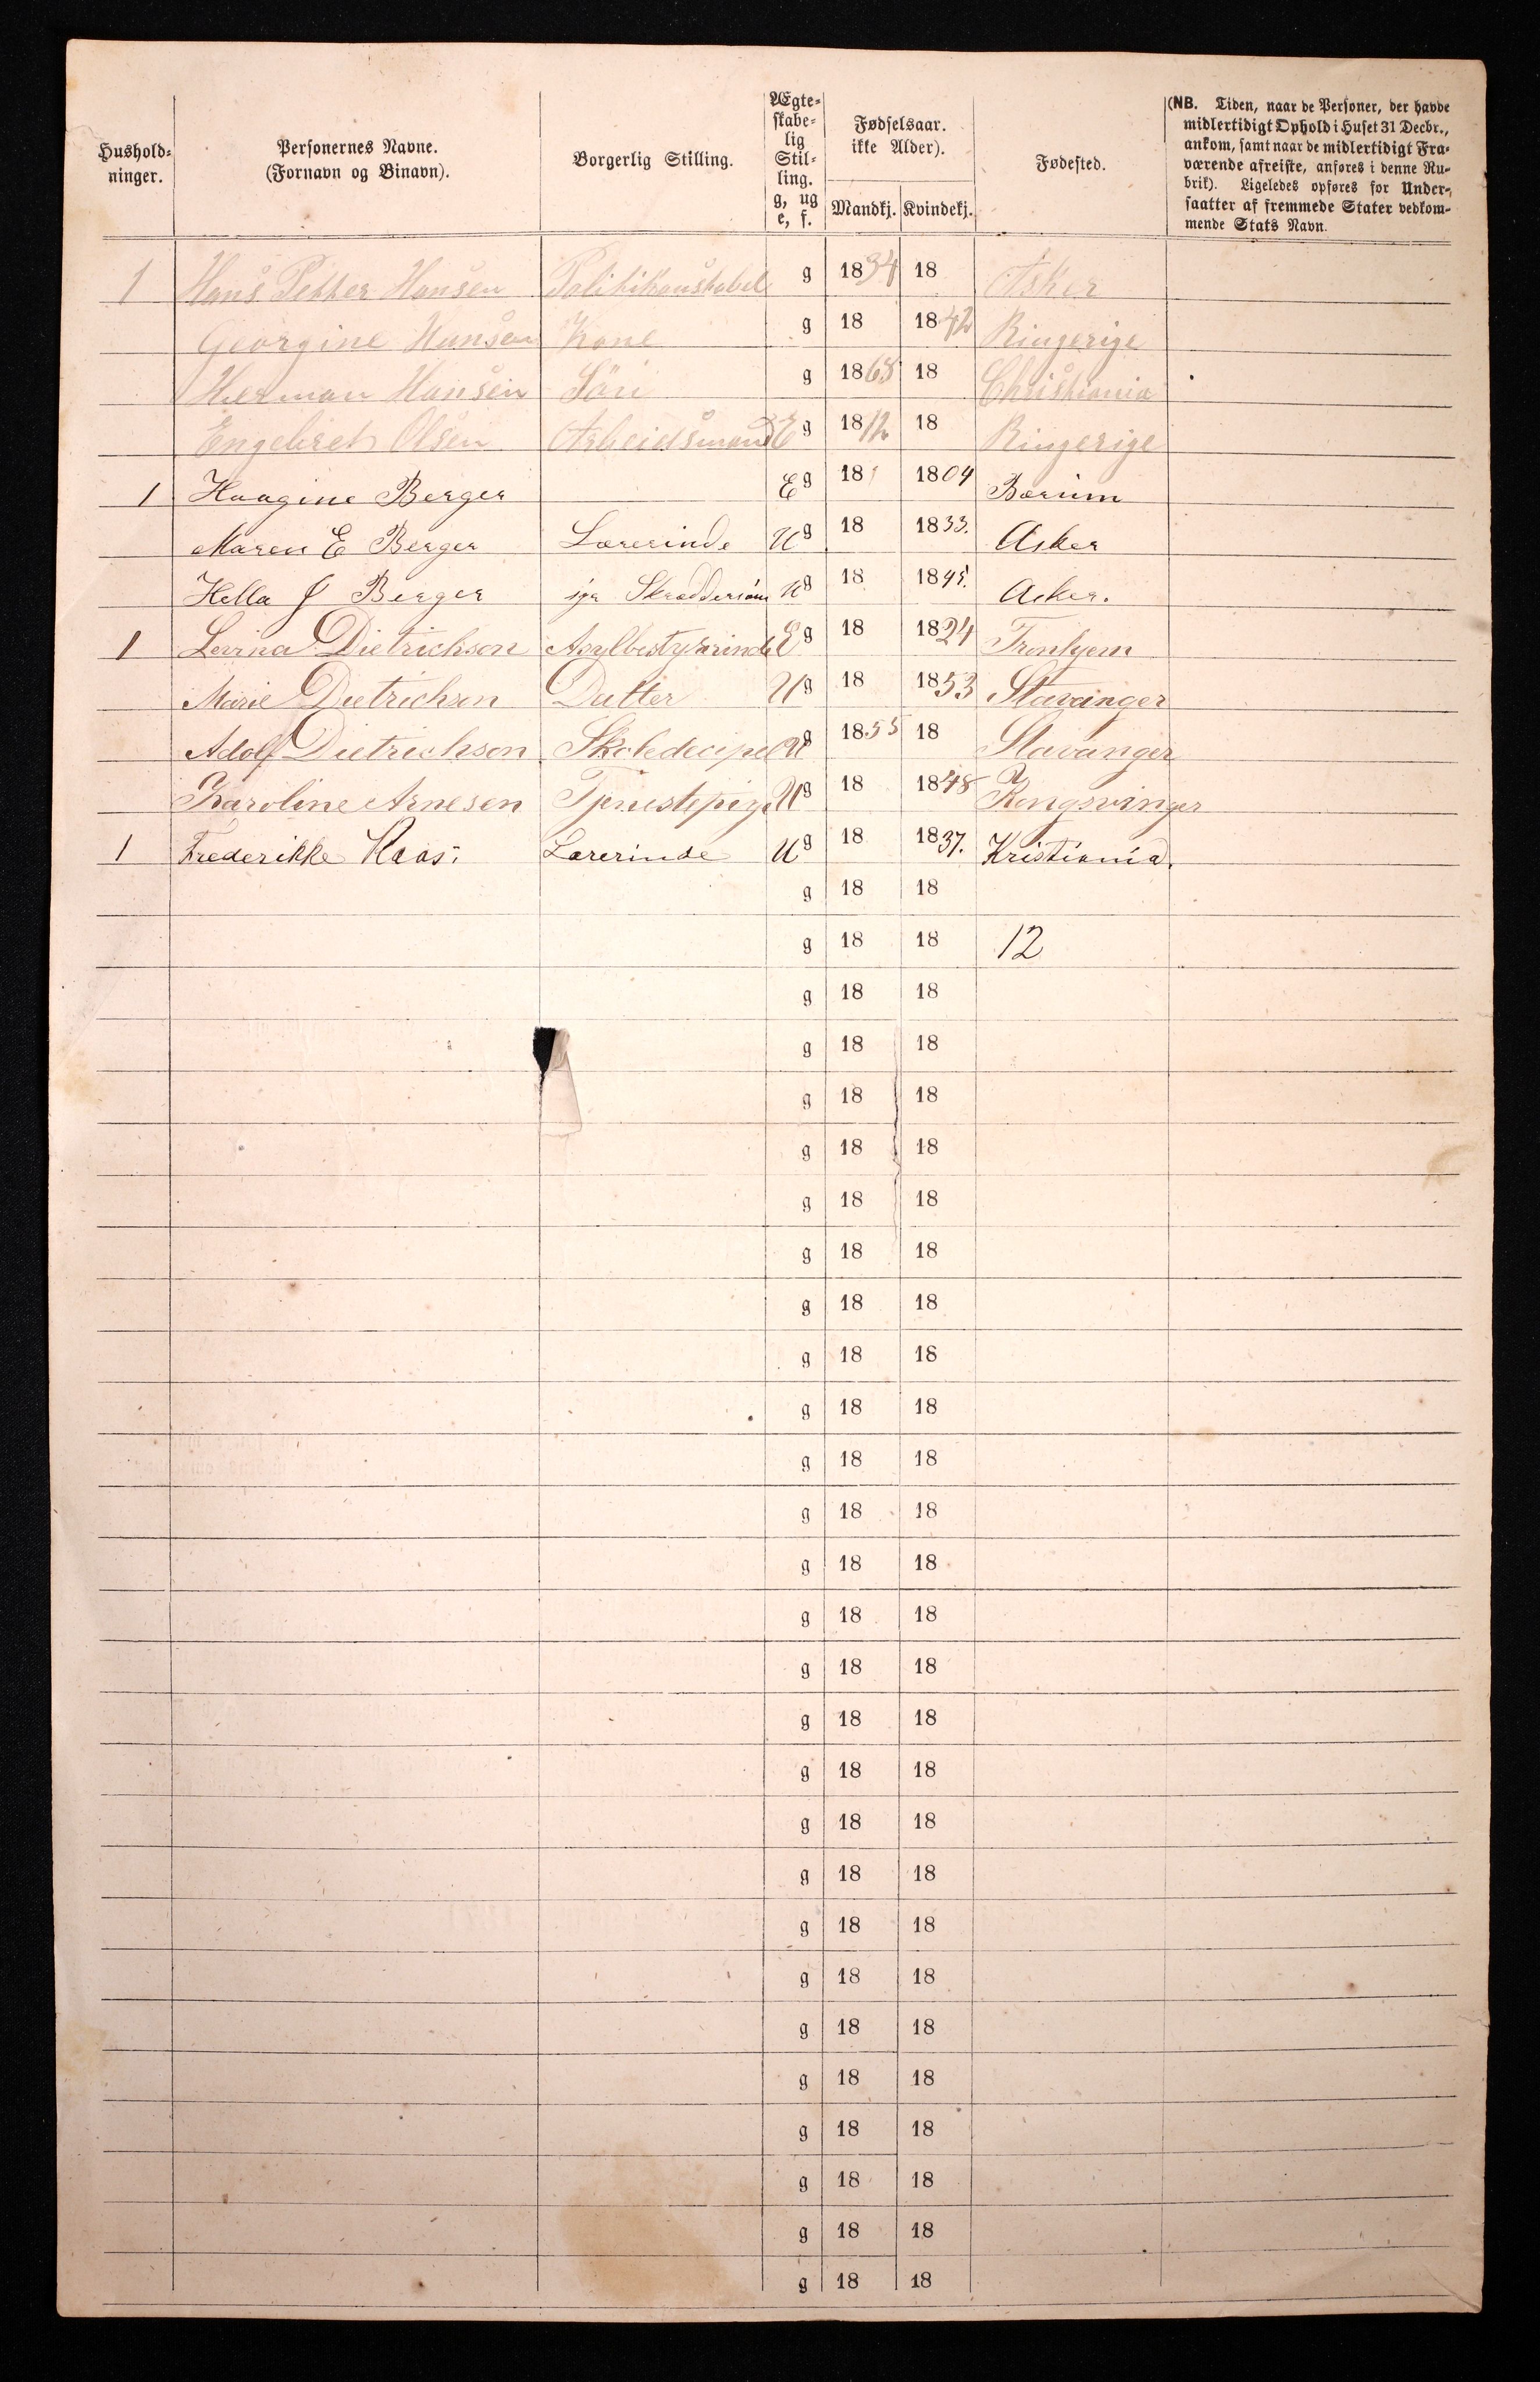 Hushold-
ninger.
Personernes Navne.
(Fornavn og Binavn).
Borgerlig Stilling.
Ægte-
skabe-
lig
Stil-
ling.
g, ug
e, f.
Fødselsaar.
ikke Alder).
Mandkj. Kvindekj.
Fødested.
(NB. Tiden, naar de Personer, der havde
midlertidigt Ophold i Huset 31 Decbr.,
ankom, samt naar de midlertidigt Fra-
værende afreiste, anføres i denne Ru-
brik). Ligeledes opføres for Under-
saatter af fremmede Stater vedkom-
mende Stats Navn.
1 Hans Petter Hansen Politikonstabel g 1834 18 Asker
Georgine Hansen Kone g 18 1842 Ringerige
Herman Hansen Sön g 1868 18 Christiania
Engebret Olsen Arbeidsmand E g 1812 18 Ringerige
1 Haagine Berger E g 18 1804 Bærum
Maren E Berger Lærerinde U g 18 1833. Asker
Hella J Berger U g 18 1845. Asker.
1 Lovina Dietrichson Asylbestyrerinde E g 18 1824 Tronhjem
Marie Dietrichson Datter U g 18 1853 Stavanger
Adolf Dietrichson Skoledecipel U g 1855 18 Stavanger
Karoline Arnesen Tjenestepige U g 18 1848 Kongsvinger
1 Frederikke Kaas. Lærerinde U g 18 1837. Kristiania.
g 18 18
g 18 18 12
g 18 18
g 18 18
g 18 18
g 18 18
g 18 18
g 18 18
g 18 18
g 18 18
g 18 18
g 18 18
g 18 18
g 18 18
g 18 18
g 18 18
g 18 18
g 18 18
g 18 18
g 18 18
g 18 18
g 18 18
g 18 18
g 18 18
g 18 18
g 18 18
g 18 18
g 18 18